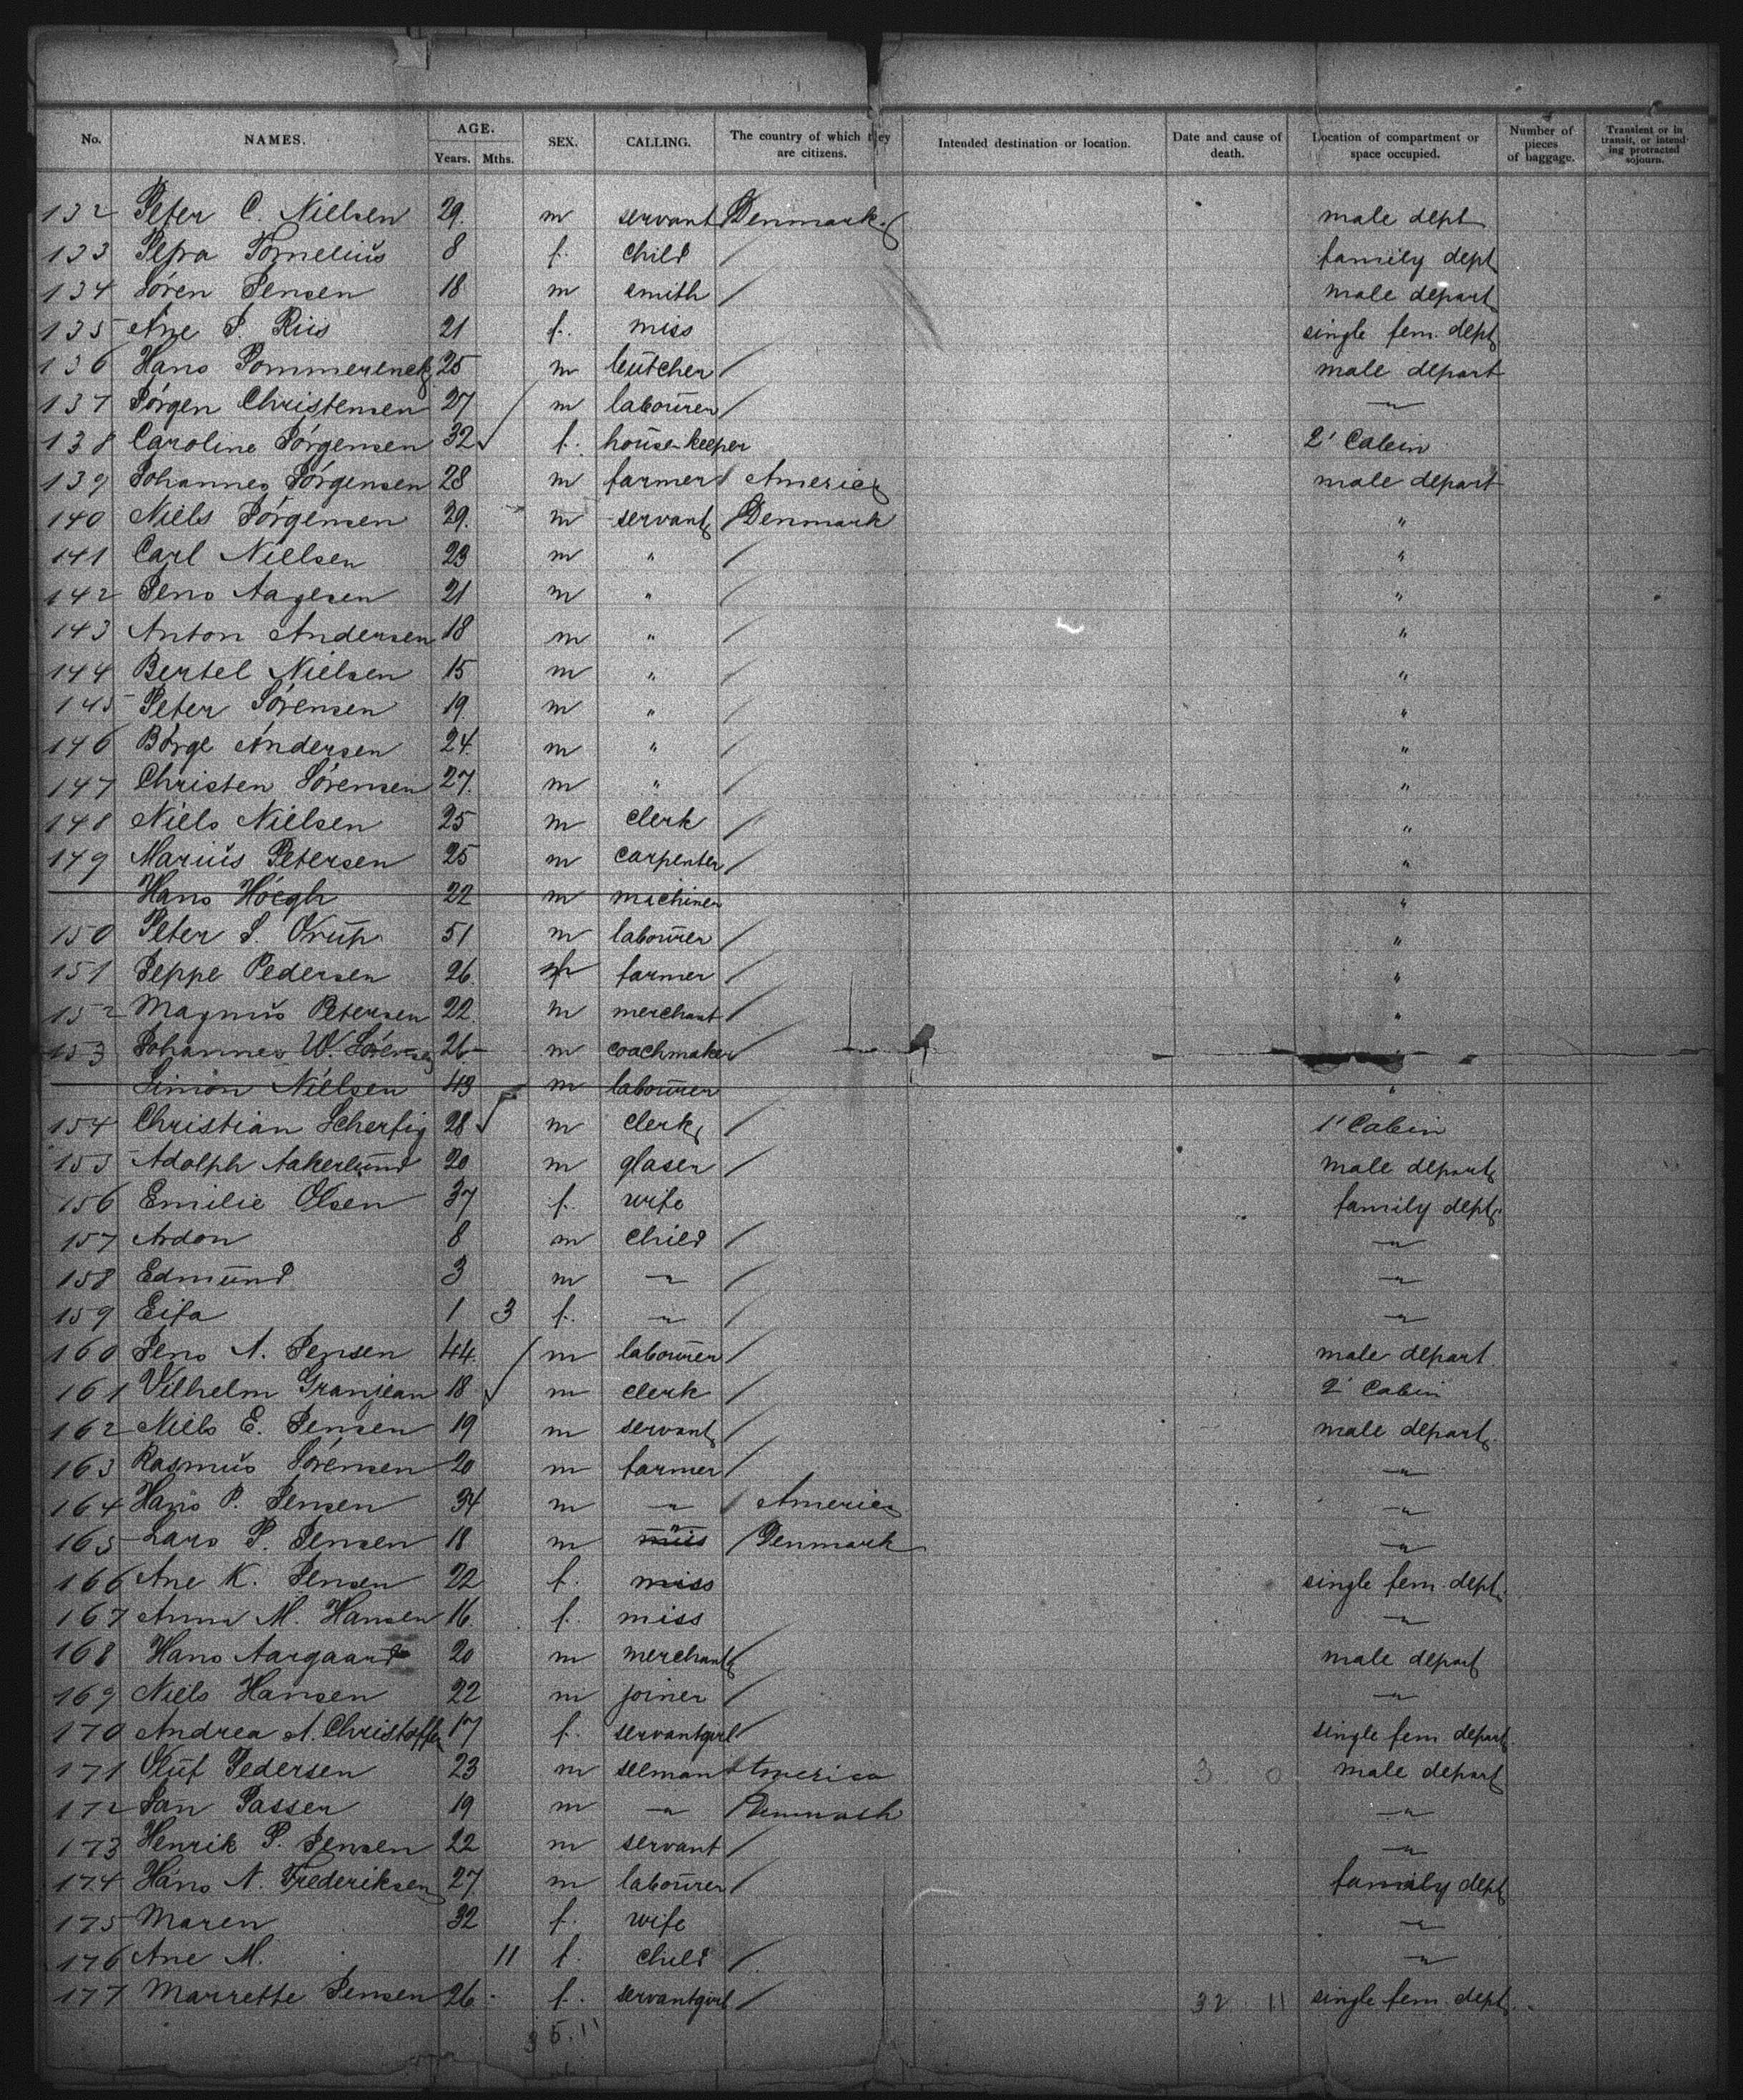 No. NAMES. AGE. Years. Mths. SEX. CALLING. The country of which they are citizens. Intended destination or location. Date and cause of death. Location of compartment or space occupied. Number of pieces of baggage. Transient or in transit, or intending protracted sojourn.
132 Peter C. Nielsen 29. m servant Denmark male dept
133 Petra Tornelius 8 f. child / family dept
134 Sören Jensen 18 m smith / male depart
135 Ane J. Riis 21 f. miss single fem. dept
136 Hans Pommerenck 25 m butcher / male depart
137 Jörgen Christensen 27 m labourer / "
138 Caroline Jörgensen 32 f. house-keeper 2' Cabin
139 Johannes Jörgensen 28 m farmer / America male depart
140 Niels Jörgensen 29. m servant / Denmark "
141 Carl Nielsen 23 m " / "
142 Jens Aagesen 21 m " / "
143 Anton Andersen 18 m " / "
144 Bertel Nielsen 15 m " / "
145 Peter Sörensen 19 m " / "
146 Börge Andersen 24. m " / "
147 Christen Sörensen 27. m " / "
148 Niels Nielsen 25 m clerk / "
149 Marius Petersen 25 m carpenter / "
Hans Höegh 22 m machiner "
150 Peter S. Orup 51 m labourer / "
151 Jeppe Pedersen 26 m farmer / "
152 Magnus Petersen 22. m merchant / "
153 Johannes W. Sörensen 26 m coachmaker /
Simon Nielsen 43 m labourer "
154 Christian Scherfig 28 m clerk / 1' Cabin
155 Adolph Aakerlund 20 m glaser / male depart
156 Emilie Olsen 37 f. wife family dept.
157 Ardon 8 m child / "
158 Edmund 3 m " / "
159 Eifa 1 3 f. " / "
160 Jens A. Jensen 44. m labourer / male depart.
161 Vilhelm Granjean 18 m clerk / 2' Cabin
162 Niels E. Jensen 19 m servant / male depart.
163 Rasmus Sörensen 20 m farmer / "
164 Hans P. Jensen 34 m " / America "
165 Lars P. Jensen 18 m " / Denmark "
166 Ane K. Jensen 22 f. miss single fem. dept.
167 Anna M. Hansen 16. f. miss "
168 Hans Aargaard 20 m merchant / male depart
169 Niels Hansen 22 m joiner / "
170 Andrea A. Christoffer 17 f. servantgirl / single fem depart.
171 Oluf Pedersen 23 m selman America 3 0 male depart
172 Jan Passer 19 m " / Denmark "
173 Henrik P. Jensen 22 m servant / "
174 Hans N. Frederiksen 27 m labourer / family dept
175 Maren 32 f. wife "
176 Ane M. 11 f. child / "
177 Marrette Jensen 26 f. servantgirl / 32 11 single fem. dept.
3 5. 11